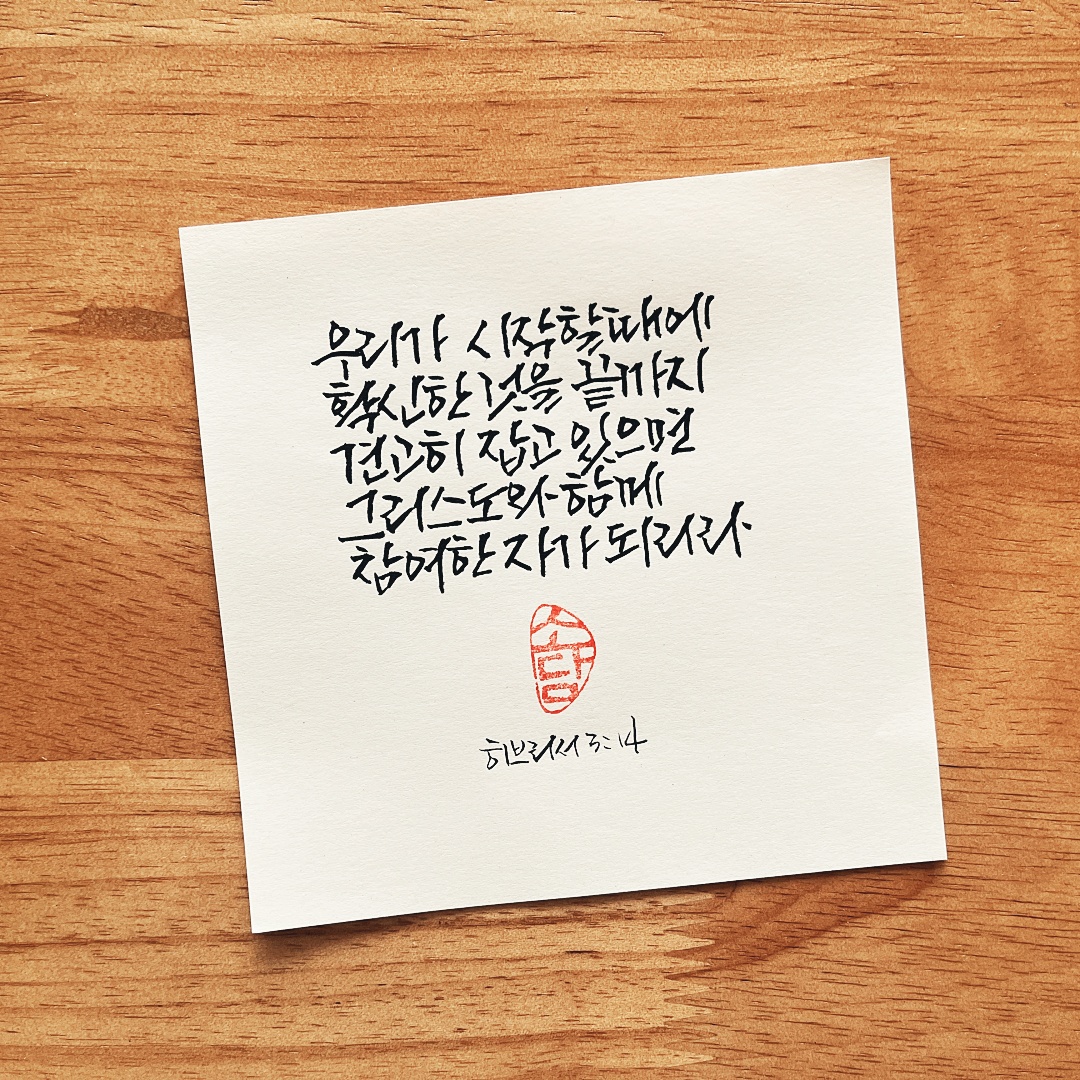 우리가 시작할때에
확신한 것을 끝까지
견고히 잡고 있으면
그리스도와 함께
참여한 자가 되리라
소담
히브리서 3:14